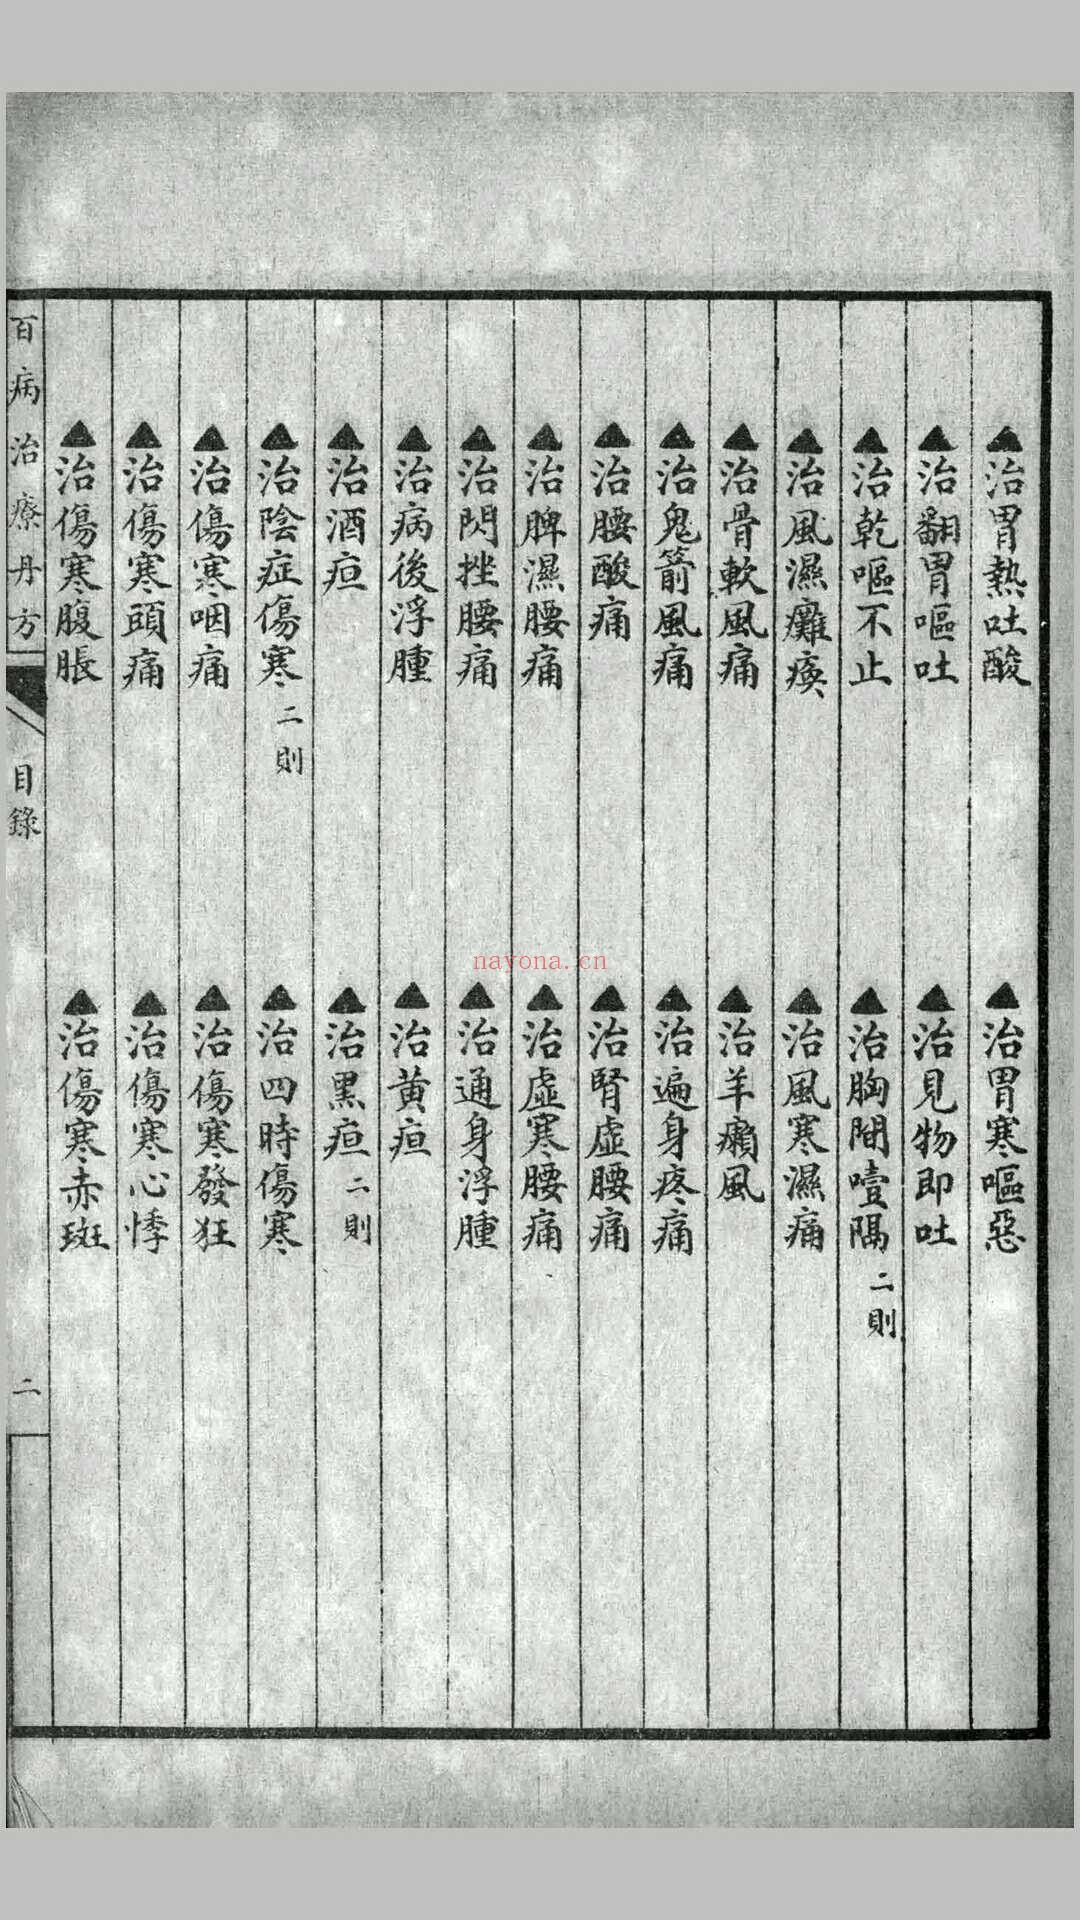 ▲治胃熱吐酸
▲治胃寒嘔惡
▲治翻胃嘔吐
▲治見物即吐
▲治乾嘔不止
▲治胸間噎隔 二則
▲治風濕癱瘓
▲治風寒濕痛
▲治骨軟風痛
▲治羊癲風
▲治鬼箭風痛
▲治遍身疼痛
▲治腰酸痛
▲治腎虛腰痛
▲治脾濕腰痛
▲治虛寒腰痛
▲治閃挫腰痛
▲治通身浮腫
▲治病後浮腫
▲治黄疸
▲治酒疸
▲治黑疸 二則
▲治陰症傷寒 二則
▲治四時傷寒
▲治傷寒咽痛
▲治傷寒發狂
▲治傷寒頭痛
▲治傷寒心悸
▲治傷寒腹脹
▲治傷寒赤斑
百病治療丹方
目錄
二
nayona.cn